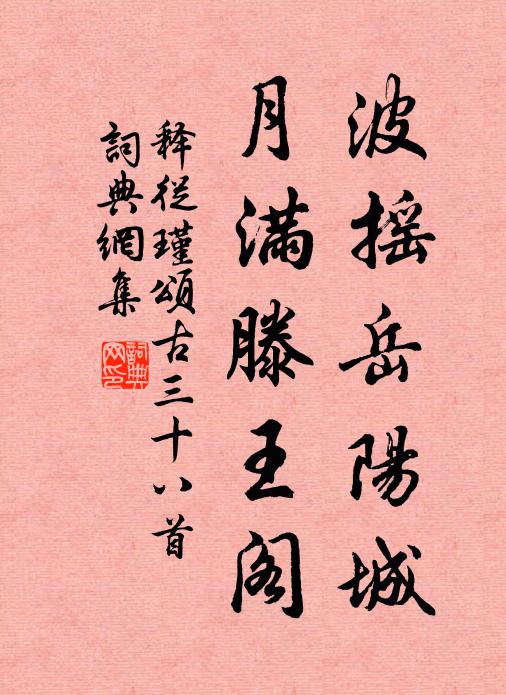 波摇岳陽城
月满滕王阁
释從瑾頌古三十八首
詞典網集
詞典网印